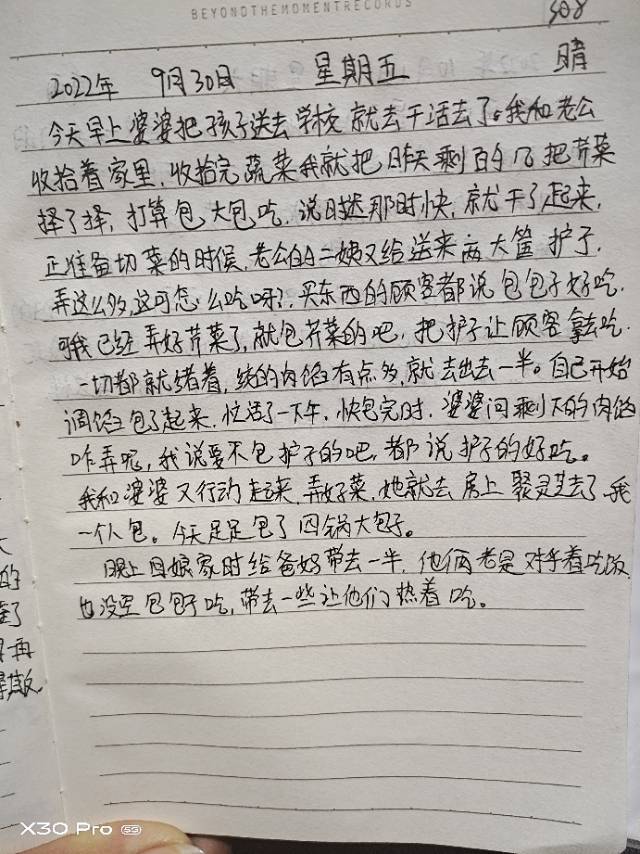 BEYONDTHEMOMENTRECORDS
2022年 9月30日 星期五 晴
今天早上婆婆把孩子送去学校就去干活去了。我和老公
收拾着家里,收拾完蔬菜我就把昨天剩的几把芹菜
择了择,打算包大包吃.说时迟那时快,就干了起来,
正准备切菜的时候,老公的二姨又给送来两大筐护子,
弄这么多,这可怎么吃呀?,买东西的顾客都说包包子好吃.
可我已经弄好芹菜了,就包芹菜的吧,把护子让顾客拿去吃.
一切都就绪着,绞的肉馅有点多,就去出去一半。自己开始
调馅包了起来,忙活了一下午,快包完时,婆婆问剩下的肉馅
咋弄呢,我说要不包护子的吧,都说护子的好吃。
我和婆婆又行动起来,弄好菜,她就去房上聚灵芝去了,我
一个人包。今天足足包了四锅大包子。
晚上回娘家时给爸妈带去一半,他俩老是对乎着吃饭
也没空包包子吃,带去一些让他们热着吃。
的
再
X30 Pro 5G